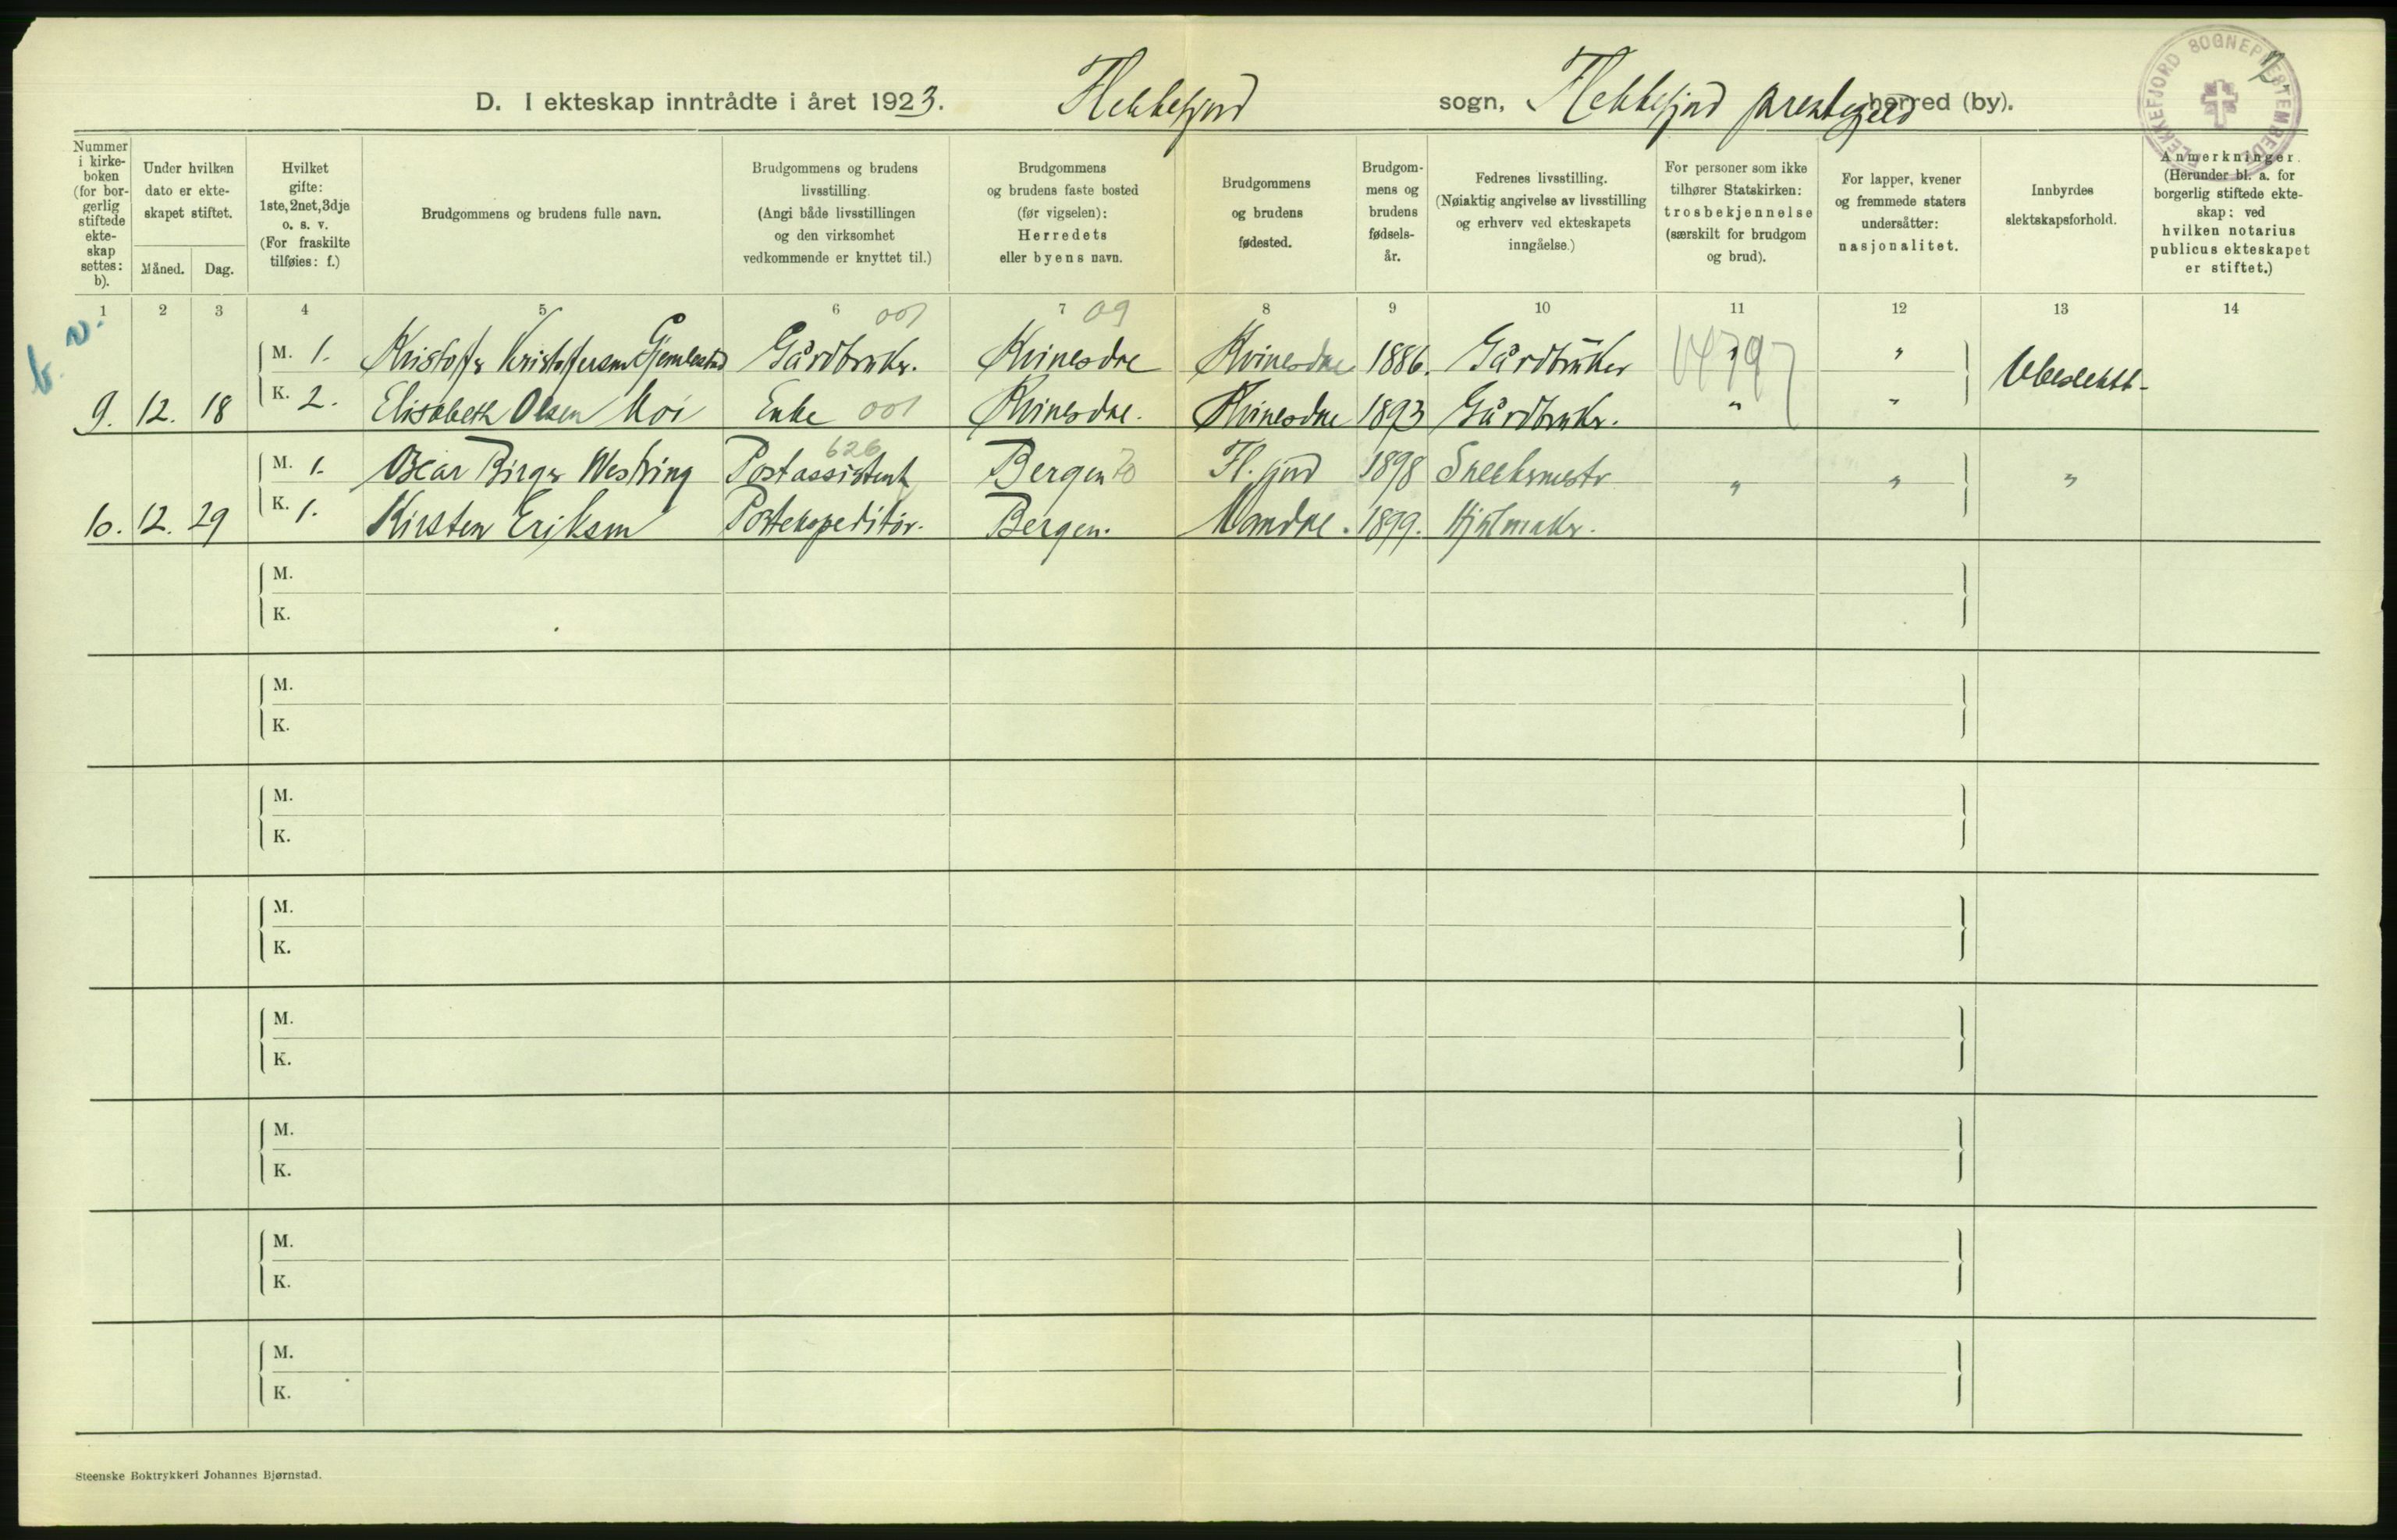 D. I ekteskap inntrådte i året 1923. Flekkefjord sogn, Flekkefjord prestegjeld herred (by).
FLEKKEFJORD SOGNEPRESTEMBEDE
2
Nummer i kirke- boken (for bor- gerlig stiftede ekte- skap settes: b).
Under hvilken dato er ekte- skapet stiftet.
Måned. Dag.
Hvilket gifte: 1ste, 2net, 3dje o. s. v. (For fraskilte tilføies: f.)
Brudgommens og brudens fulle navn.
Brudgommens og brudens livsstilling. (Angi både livsstillingen og den virksomhet vedkommende er knyttet til.)
Brudgommens og brudens faste bosted (før vigselen): Herredets eller byens navn.
Brudgommens og brudens fødested.
Brudgom- mens og brudens fødsels- år.
Fedrenes livsstilling. (Nøiaktig angivelse av livsstilling og erhverv ved ekteskapets inngåelse.)
For personer som ikke tilhører Statskirken: trosbekjennelse (særskilt for brudgom og brud).
For lapper, kvener og fremmede staters undersåtter: nasjonalitet.
Innbyrdes slektskapsforhold.
Anmerkninger. (Herunder bl. a. for borgerlig stiftede ekte- skap: ved hvilken notarius publicus ekteskapet er stiftet.)
1 2 3 4 5 6 7 8 9 10 11 12 13 14
001 09
M. 1. Kristoffer Kristoffersen Gjemlestad Gårdbruker. Kvinesdal Kvinesdal 1886. Gårdbruker " " Ubeslektet
9. 12. 18 K. 2. Elisabeth Olsen Moi Enke 001 Kvinesdal. Kvinesdal 1893 Gårdbruker. " "
626
M. 1. Oscar Birger Westring Postassistent Bergen 20 Fl.fjord 1898 Snekkermester " " "
10. 12. 29 K. 1. Kirsten Eriksen Postekspeditør. Bergen. Mandal. 1899. Hjulmaker.
M.
K.
M.
K.
M.
K.
M.
K.
M.
K.
M.
K.
M.
K.
M.
K.
Steenske Boktrykkeri Johannes Bjørnstad.